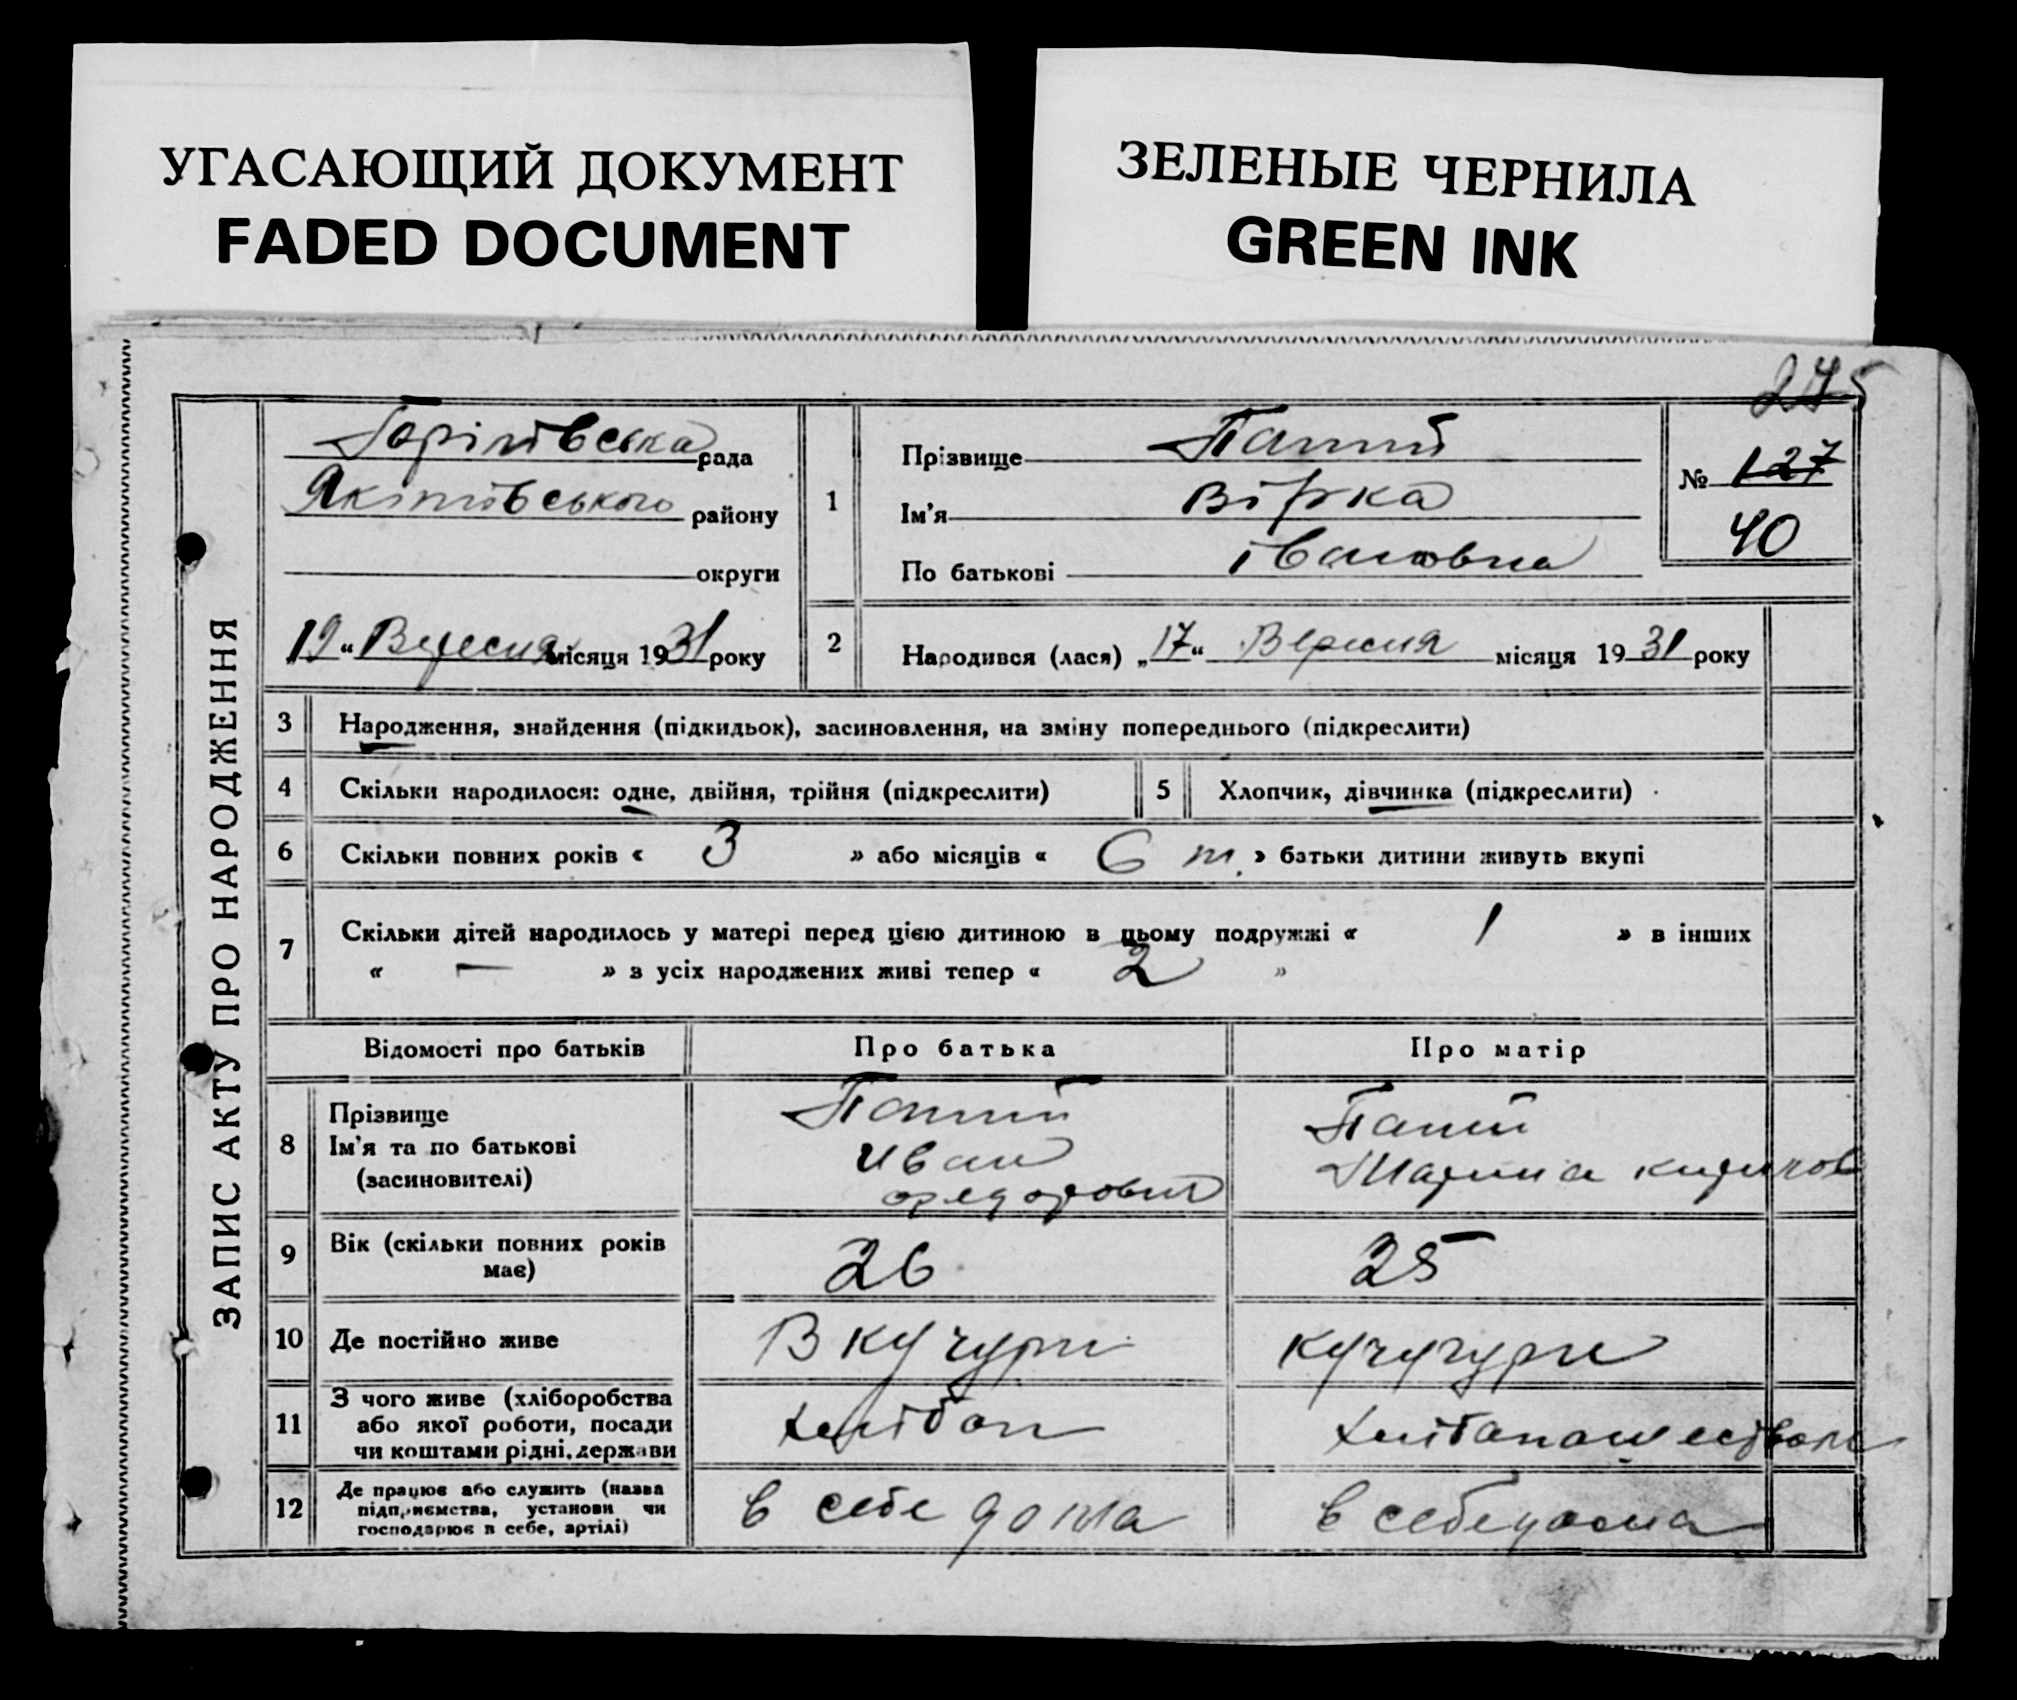 УГАСАЮЩИЙ ДОКУМЕНТ
FADED DOCUMENT
ЗЕЛЕНЫЕ ЧЕРНИЛА
GREEN INK
ЗАПИС АКТУ ПРО НАРОДЖЕННЯ
рада
району
округи
19 " Вересня місяця 1931 року
1
Прізвище
Ім'я Вірка
По батькові івановна
№ 127
40
2
Народився (лася) „17" Вересня місяця 1931 року
3 Народження, знайдення (підкидьок), засиновлення, на зміну попереднього (підкреслити)
4 Скільки народилося: одне, двійня, трійня (підкреслити)
5 Хлопчик, дівчинка (підкреслити)
6 Скільки повних років « 3 » або місяців « 6 м. » батьки дитини живуть вкупі
7 Скільки дітей народилось у матері перед цією дитиною в цьому подружжі « 1 » в інших
« — » з усіх народжених живі тепер « 2 »
Відомості про батьків Про батька Про матір
8 Прізвище
Ім'я та по батькові
(засиновителі)
Иван
Федорович
Марина
9 Вік (скільки повних років
має)
26 25
10 Де постійно живе
В кучугури кучугури
11 З чого живе (хліборобства
або якої роботи, посади
чи коштами рідні, держави
хлібоп
12 Де працює або служить (назва
підприємства, установи чи
господарює в себе, артілі)
в себе дома в себе дома